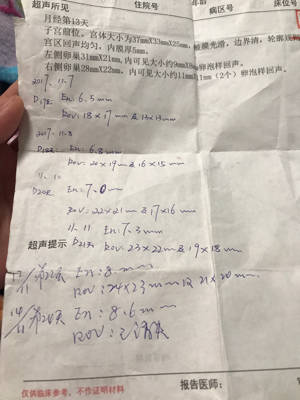 超声所见 住院号 年龄 床位号
病区号
月经第13天
子宫前位。宫体大小为37mmX33mmX25mm, 被膜光滑, 边界清, 轮廓规
宫区回声均匀。内膜厚5mm。
左侧卵巢31mmX21mm, 内可见大小约9mmX8mm卵泡样回声。
右侧卵巢28mmX22mm, 内可见大小约11mmX11mm (2个) 卵泡样回声。
2017.11.7
D17天: En: 6.5mm
Rov: 18×17mm & 13×13mm
2017.11.8
D18天: En: 6.8mm
Rov: 20×19m & 16×15mm
11.10
D20天 En: 7.0mm
Rov: 22×21m & 17×16mm
11.11 En: 7.3mm
超声提示 D21天 Rov: 23×22mm & 19×18mm
En: 8mm
Rov: 24×23mm & 21×20mm.
En: 8.6mm
Rov: 已消失
报告医师:
仅供临床参考, 不作证明材料